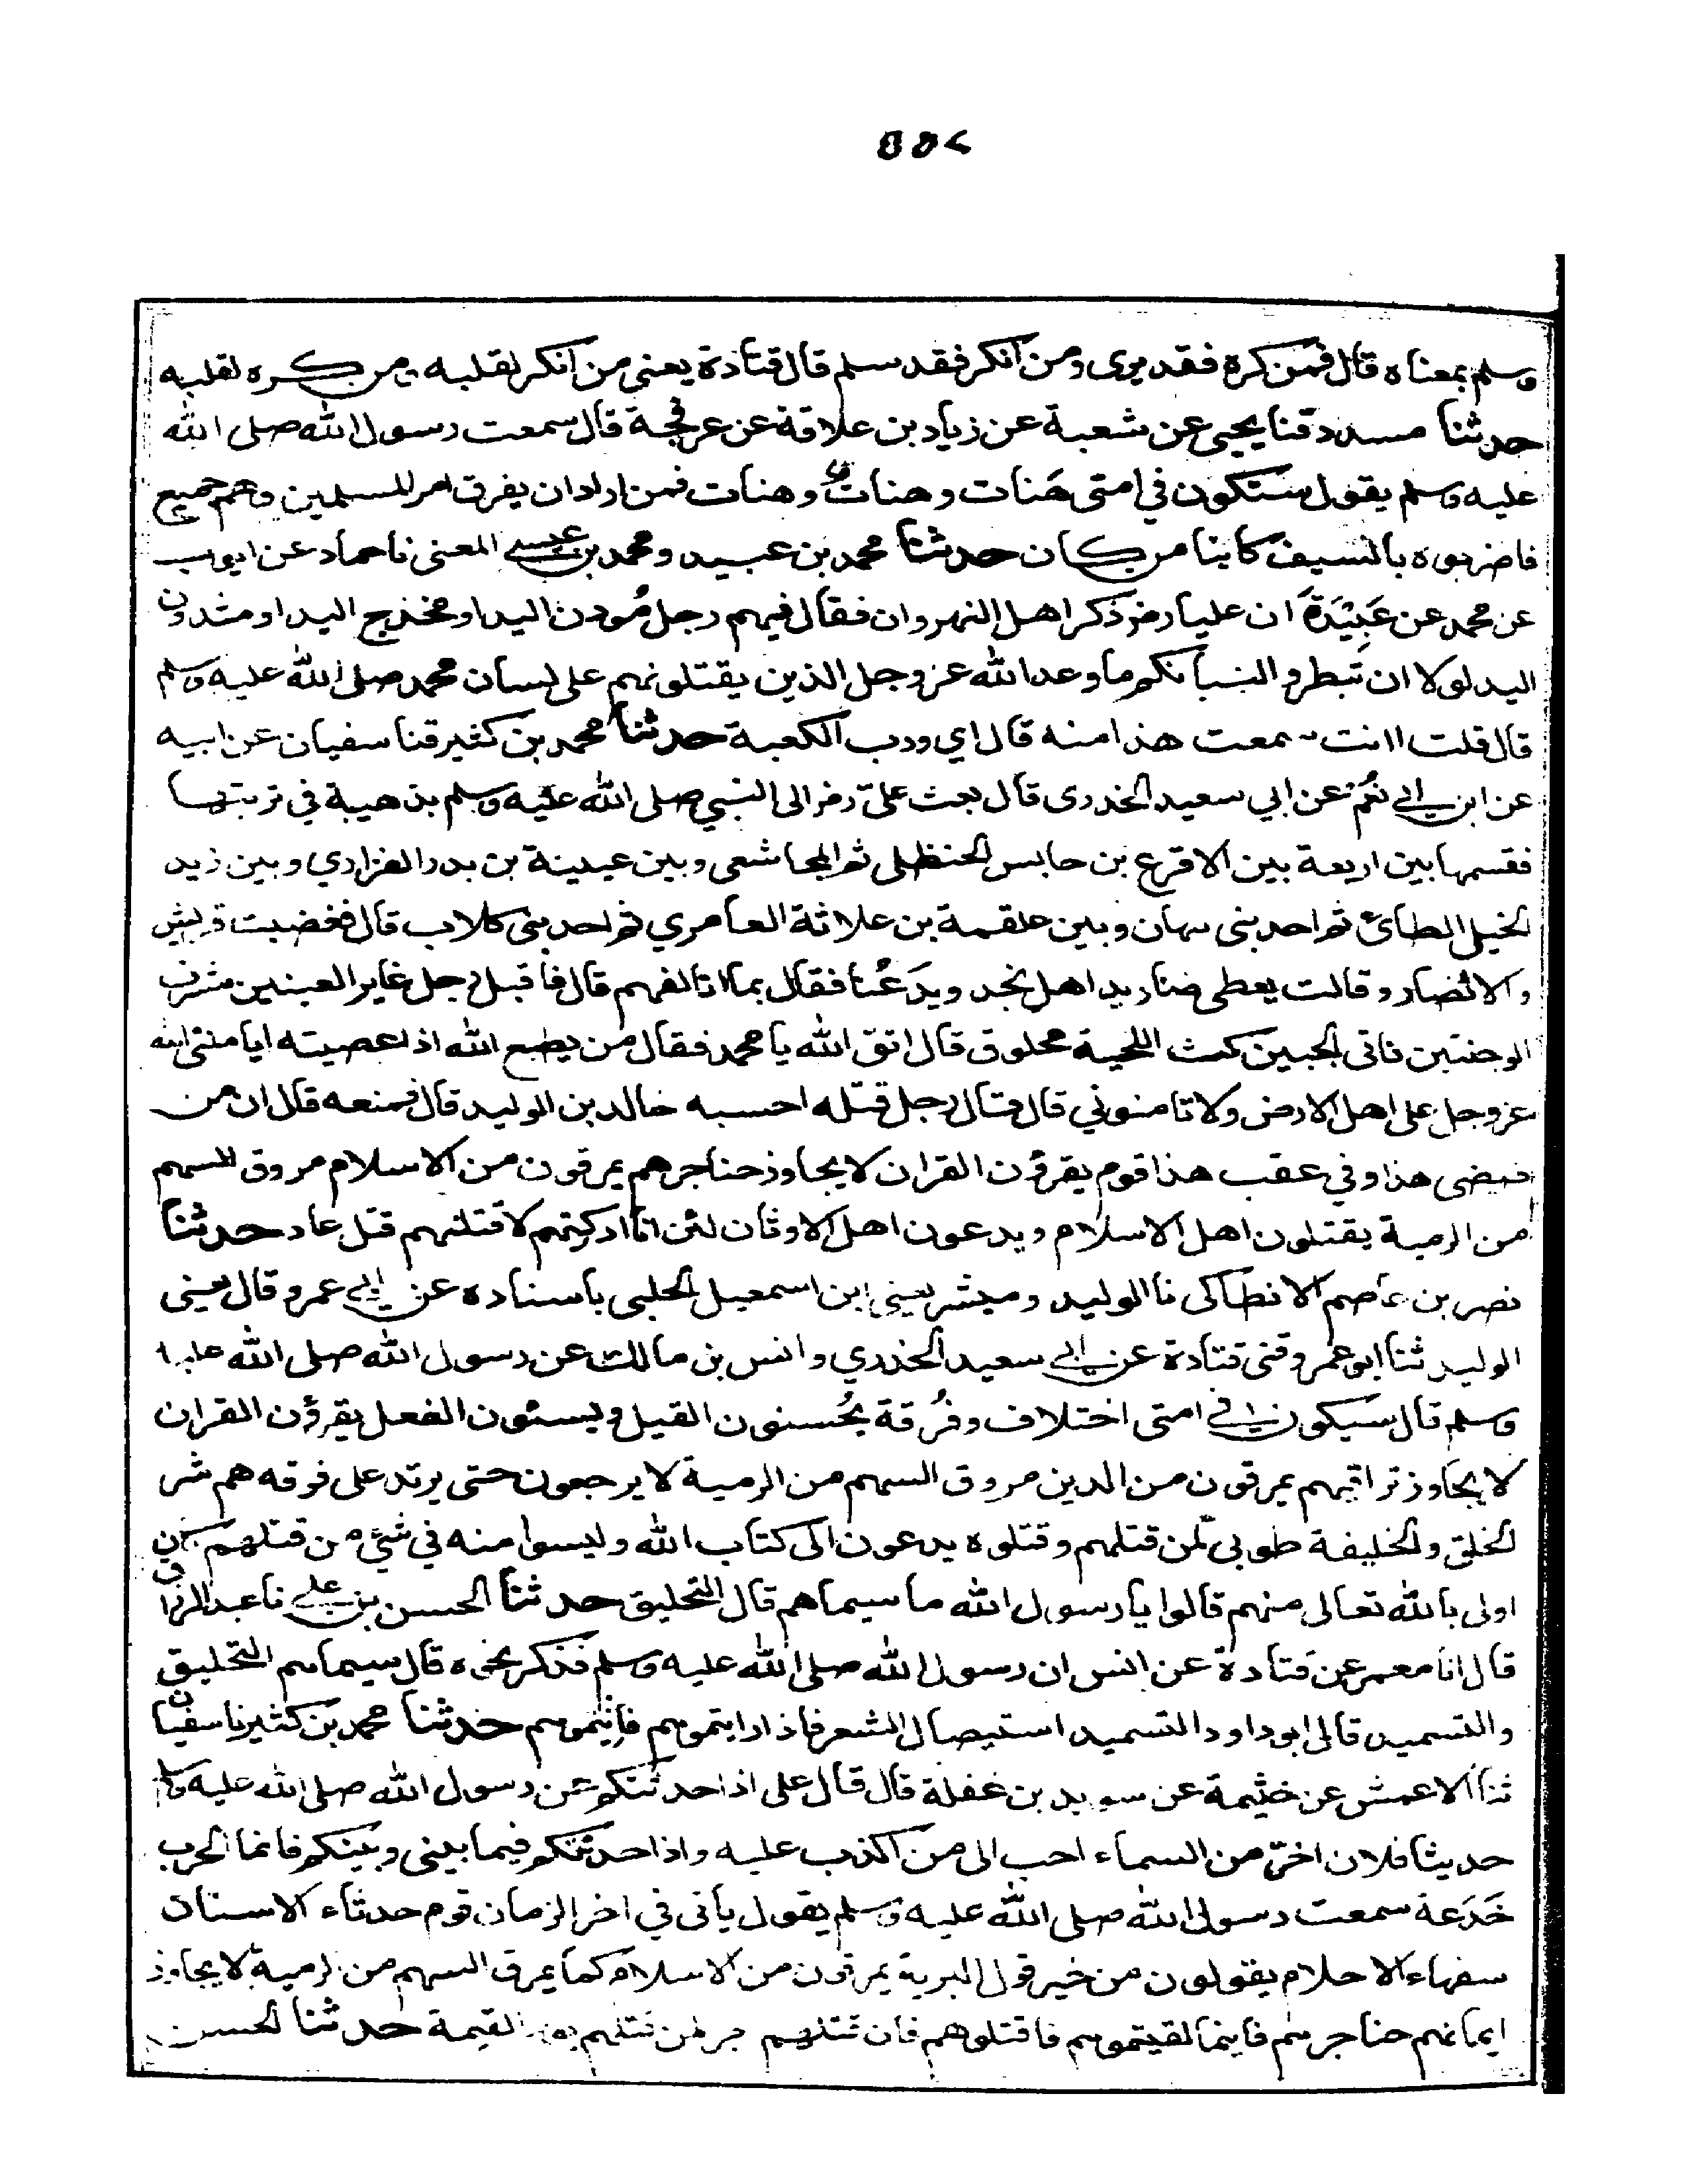 ٥٥٧
وسلم بمعناه قال فمن كره فقد برى ومن انكر فقد سلم قال قتادة يعنى من انكر بقلبه ومن كره بقلبه
حدثنا مسدد قثنا يحيى عن شعبة عن زياد بن علاقة عن عرفجة قال سمعت رسول الله صلى الله
عليه وسلم يقول ستكون في امتى هَنات وهنات وهنات فمن اراد ان يفرق امر المسلمين وهم جميع
فاضربوه بالسيف كاينا من كان حدثنا محمد بن عبيد ومحمد بن عيسى المعنى نا حماد عن ايوب
عن محمد عن عَبِيْدَةَ ان عليا رضر ذكر اهل النهروان فقال فيهم رجل مُودن اليد او مخدج اليد او مثدون
اليد لولا ان تبطروا لنبأنكم ما وعد الله عز وجل الذين يقتلونهم على لسان محمد صلى الله عليه وسلم
قال قلت اانت سمعت هذا منه قال اي ورب الكعبة حدثنا محمد بن كثير قثنا سفيان عن ابيه
عن ابن ابي نُعْم عن ابي سعيد الخدرى قال بعث علىّ رضر الى النبي صلى الله عليه وسلم بذهيبة في تربتها
فقسمها بين اربعة بين الاقرع بن حابس الحنظلى ثم المجاشعى وبين عيينة بن بدر الفزاري وبين زيد
الخيل الطائ ثم احد بنى نبهان وبين علقمة بن علاثة العامري ثم احد بنى كلاب قال فغضبت قريش
والانصار وقالت يعطى صناديد اهل نجد ويدَعُنا فقال بما انا لفهم قال فاقبل رجل غاير العينين مشرف
الوجنتين ناتى الجبين كث اللحية محلوق قال اتق الله يا محمد فقال من يطع الله اذا عصيته ايامننى الله
عز وجل على اهل الارض ولا تامنوني قال فسال رجل قتله احسبه خالد بن الوليد قال فمنعه قال ان من
ضيضى هذا وفي عقب هذا قوم يقرؤن القران لا يجاوز حناجرهم يمرقون من الاسلام مروق السهم
من الرمية يقتلون اهل الاسلام ويدعون اهل الاوثان لئن انا ادركتهم لاقتلنهم قتل عاد حدثنا
نصر بن عاصم الانطاكى نا الوليد ومبشر يعني ابن اسمعيل الحلبى باسناده عن ابي عمرو قال يعنى
الوليد ثنا ابو عمرو قثنى قتادة عن ابي سعيد الخدري وانس بن مالك عن رسول الله صلى الله عليه
وسلم قال سيكون في امتى اختلاف وفُرقة يُحسنون القيل ويسئون الفعل يقرؤن القران
لا يجاوز تراقيهم يمرقون من الدين مروق السهم من الرمية لا يرجعون حتى يرتد على فوقه هم شر
الخلق والخليفة طوبى لمن قتلهم وقتلوه يدعون الى كتاب الله وليسوا منه في شئ من قتلهم كان
اولى بالله تعالى منهم قالوا يا رسول الله ما سيماهم قال التحليق حدثنا الحسن بن علي نا عبد الرزاق
قال انا معمر عن قتادة عن انس ان رسول الله صلى الله عليه وسلم فذكر نحوه قال سيماهم التحليق
والتسميد قال ابو داود التسميد استيصال الشعر فاذا رايتموهم فانيموهم حدثنا محمد بن كثير نا سفيان
ثنا الاعمش عن خيثمة عن سويد بن غفلة قال قال على اذا حدثتكم عن رسول الله صلى الله عليه وسلم
حديثا فلان اخرّ من السماء احب الى من اكذب عليه واذا حدثتكم فيما بينى وبينكم فانما الحرب
خَدَعة سمعت رسول الله صلى الله عليه وسلم يقول يأتى في اخر الزمان قوم حدثاء الاسنان
سفهاء الاحلام يقولون من خير قول البرية يمرقون من الاسلام كما يمرق السهم من الرمية لا يجاوز
ايمانهم حناجرهم فاينما لقيتموهم فاقتلوهم فان قتلهم اجر لمن قتلهم يوم القيمة حدثنا الحسن